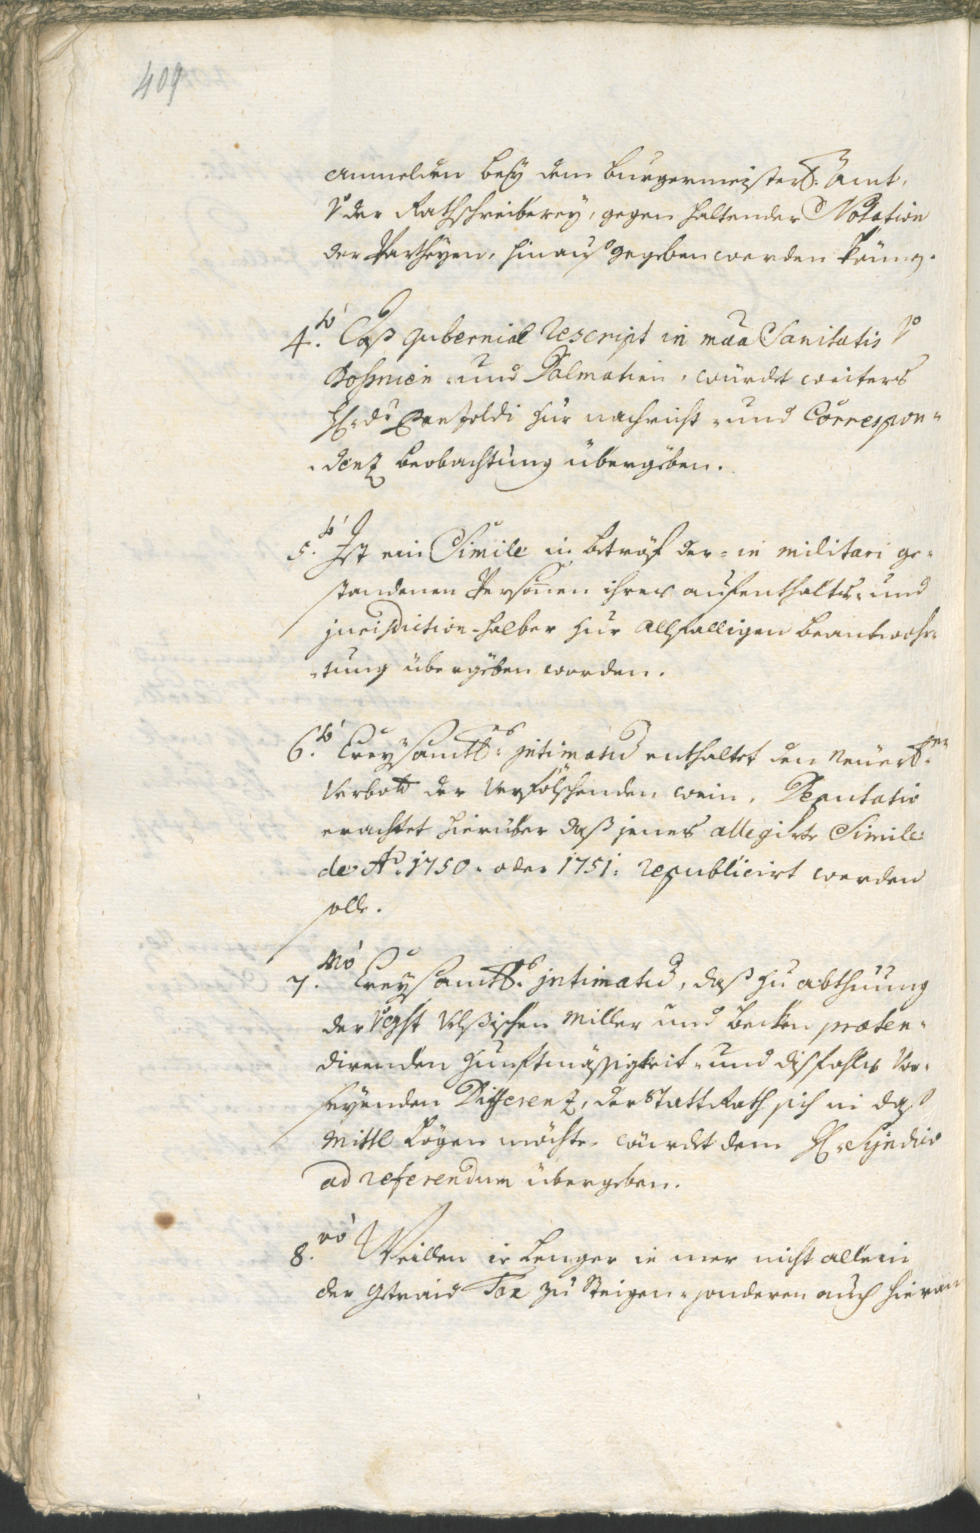 409
anmelden bey dem burgermeister: Ambt,
der Rathschreiberey, gegen haltender Notation
der Partheyen, hinauß gegeben werden könne.
4.to Das gubernial rescript in maa Sanitatis
Boßnien- und Dalmatien, würdt weiters
H: zur nachricht- und Correspon-
-denz beobachtung übergeben.
5.to Ist ein Simile in beträf der- in militari ge-
standenen Persohnen ihres aufenthalts- und
jurisdiction-halber zur allfälligen beantwohr-
-tung übergeben worden.
6.to Creysambts: jntimatum enthaltet den neüer
Verbott der verfölschenden wein, Deputatio
erachtet hierüber daß jenes allegirte Simile
de Ao: 1750. oder 1751: republicirt werden
solle.
7.mo Creysambts: jntimatum, daß zu abthuung
der Welßischen Miller und becken præten-
direnden zunftmässigkeit- und dißfahls vor-
seyenden Differenz, der Statt Rath sich in daß
Mittl lögen möchte, würdt dem H: Syndico
ad referendum übergeben.
8.vo Weillen ie lenger ie mer nicht allein
der getraid Tax zu steigen, sonderen auch hieran